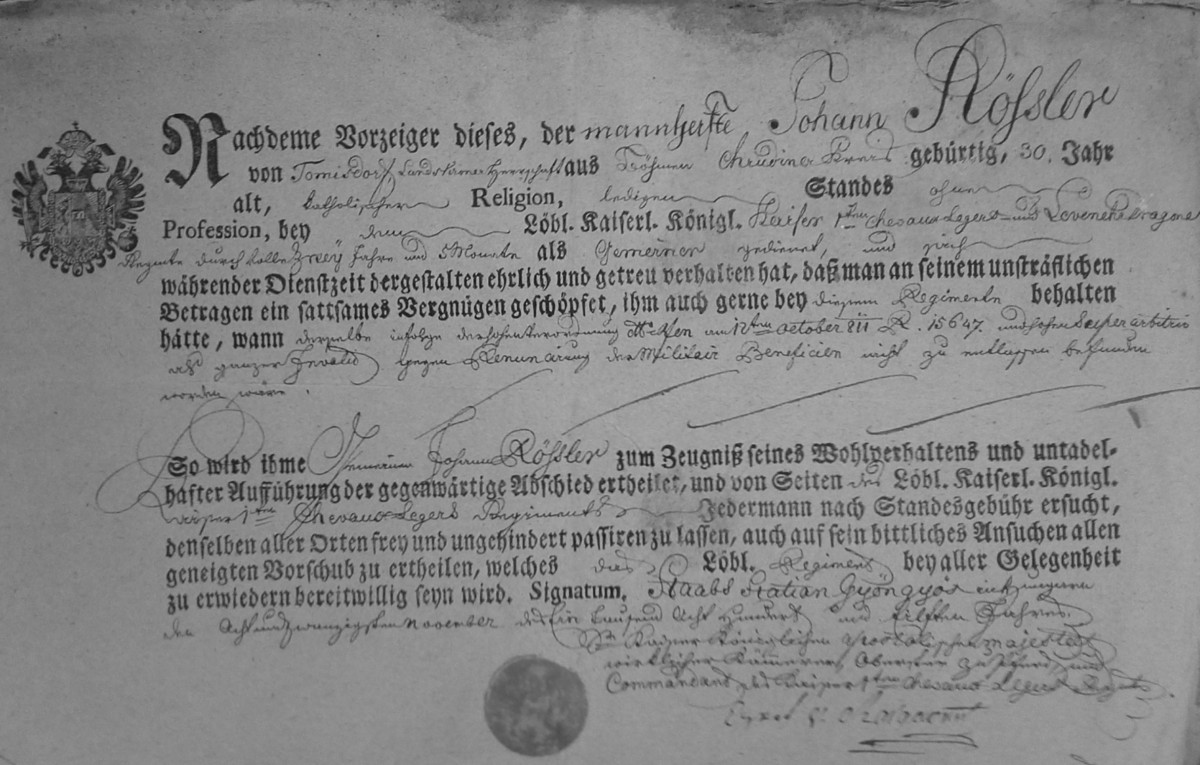 Nachdeme Vorzeiger dieses, der mannhafte Johann Rößler
von Tomisdorf, Landskroner Herrschaft aus Böhmen Chrudiner Kreis gebürtig, 30. Jahr
alt, katholischer Religion, ledigen Standes ohne
Profession, bey dem Löbl. Kaiserl. Königl. Kaiser 1ten Chevaux Legers und Dragoner
Regimte durch volle Zwey Jahre und 5 Monate als Gemeiner gedienet, und sich
währender Dienstzeit dergestalten ehrlich und getreu verhalten hat, daß man an seinem unsträflichen
Betragen ein sattsames Vergnügen geschöpfet, ihm auch gerne bey diesem Regimente behalten
hätte, wann derselbe infolge am 12ten October 811 R. 15647 und Superarbitrio
als ganzer Invalid gegen der Militair Beneficien nicht zu entlassen befunden
worden wäre.
So wird ihme Gemeinen Johann Rößler zum Zeugniß seines Wohlverhaltens und untadel-
hafter Aufführung der gegenwärtige Abschied ertheilet, und von Seiten des Löbl. Kaiserl. Königl.
Kaiser 1ten Chevaux Legers Regiments Jedermann nach Standesgebühr ersucht,
denselben aller Orten frey und ungehindert passiren zu lassen, auch auf sein bittliches Ansuchen allen
geneigten Vorschub zu ertheilen, welches dies Löbl. Regiment bey aller Gelegenheit
zu erwiedern bereitwillig seyn wird. Signatum, Staabs Station Gyöngyös in Hungarn
den Achtundzwanzigsten November des Ein Tausend Acht Hundert und eilften Jahres.
Sr Kaiser Königlichen Apostolischen Majestät
wirklicher Kämmerer, Oberster zu Pferd, und
Commandant des Kaiser 1ten Chevaux Legers Regts.